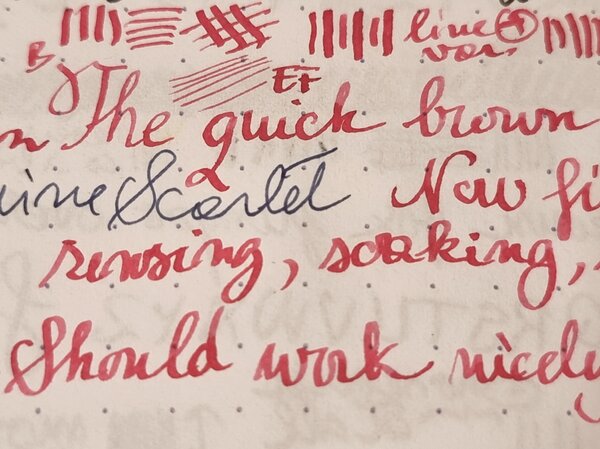 B line
EF var
n The quick brown
Scarlet Now fi
rensing, soaking,
Should work nicely